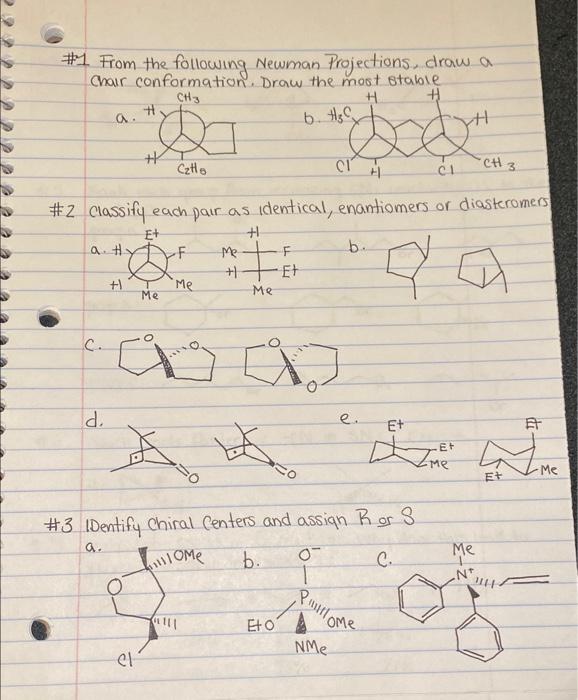 #1 From the following Newman Projections, draw a
chair conformation. Draw the most stable
a. H CH3 H C2H6
b. H3C H H H Cl H Cl CH3
#2 classify each pair as identical, enantiomers or diasteromers
a. H Et F H Me Me
H Me F H Et Me
b.
c. O O O O
d. O O
e. Et Et Me Et Et Me
#3 IDentify Chiral Centers and assign R or S
a. OMe O Cl
b. O- P EtO OMe NMe
c. Me N+